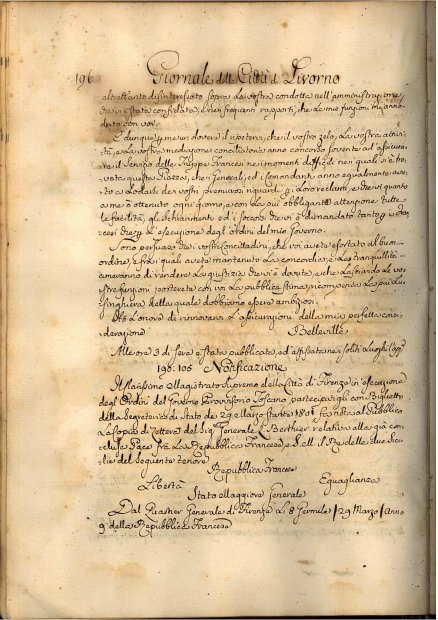 196. Giornale della Città di Livorno
altrettanto disinteressato sopra la vostra condotta nell'amministrazione,
che vi è stata confidata, e nei frequenti rapporti, che le mie funzioni mi anno
dato con voi.
È dunque per me un dovere il ripetervi, che il vostro zelo, la vostra attivi-
tà, e la vostra mediazione conciliatoria anno concorso sovente ad assicura-
re il servizio delle Truppe Francesi nei momenti difficili nei quali si è tro-
vata questa Piazza, che i Generali, ed i Comandanti anno egualmente avu-
to a lodarsi dei vostri premurosi riguardi per i loro reclami, e che vi quanto
a me è ottenuto ogni giorno, e con la più obbligante attenzione tutte
le facilità, gli schiarimenti ed i soccorsi che vi è dimandato tanto per
cesi che per l'esecuzione degl'ordini del mio Governo.
Sono persuaso, che i vostri concittadini, che voi avete esortato al buon
ordine, e fra i quali avete mantenuto la concordia, e la tranquillità
ameranno di rendervi la giustizia che vi è dovuta, e che lasciando le vo-
stre funzioni porterete con voi la pubblica stima, ricompensa la più lu-
singhiera della quale dobbiamo essere ambiziosi.
Ho l'onore di rinnovarvi l'assicurazioni della mia perfetta consi-
derazione Belleville
Alle ore 3 di sera è stata pubblicata, ed affissata nei soliti luoghi
196. 105 Notificazione
Il Magistrato Supremo della Città di Firenze in esecuzione
degl'Ordini del Governo Provvisorio Toscano partecipatigli con Biglietto
della Segreteria di Stato de 29 Marzo stante 1801 fa nota al Pubblico
la Copia di Lettera del Sig.r Generale Berthier relativa alla già con-
clusa Pace fra la Repubblica Francese, e S. M. il Re delle due Sici-
lie del seguente tenore
Repubblica Francese
Libertà Eguaglianza
Stato Maggiore Generale
Dal Quartier Generale di Firenze li 8 Germile /29 Marzo/ anno
9 della Repubblica Francese